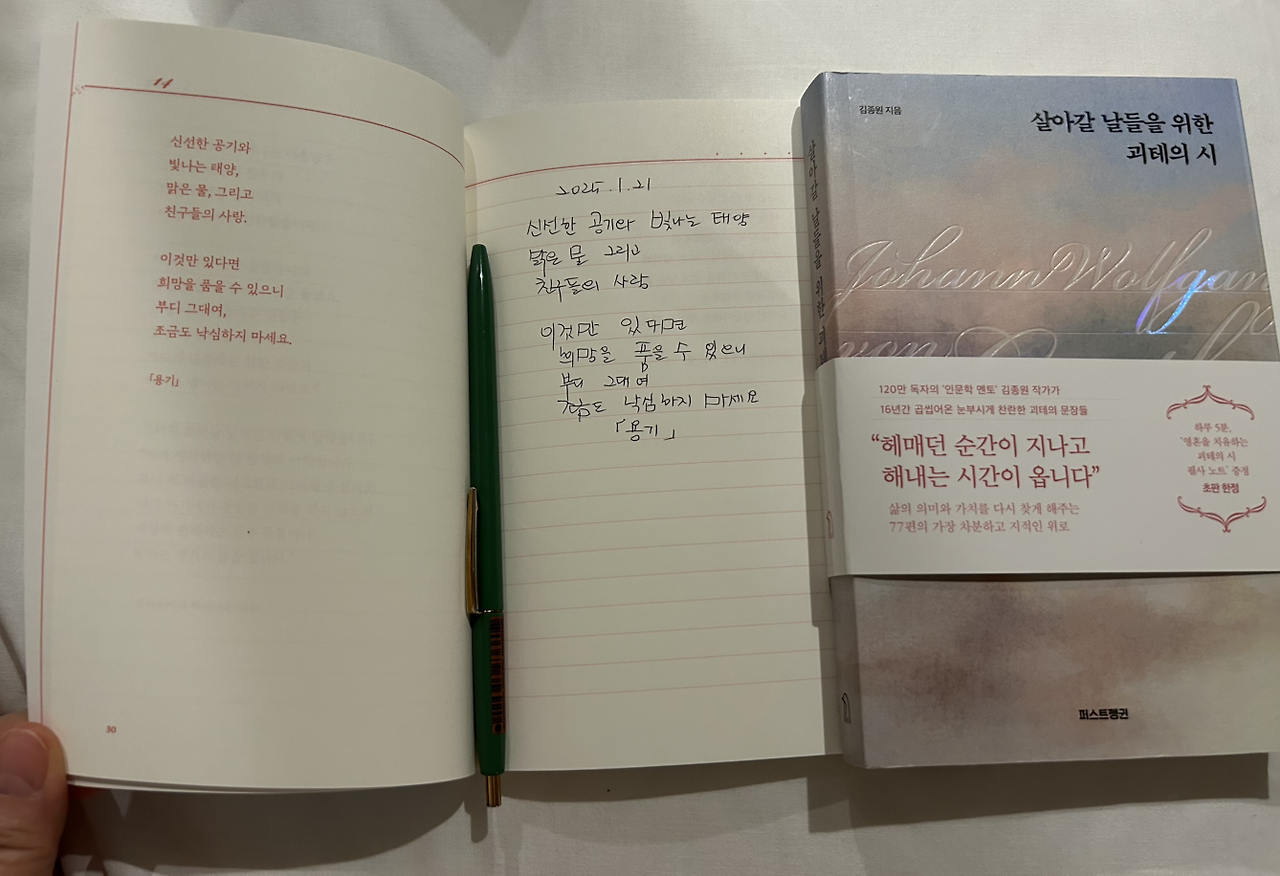 14
신선한 공기와
빛나는 태양,
맑은 물, 그리고
친구들의 사랑.
이것만 있다면
희망을 품을 수 있으니
부디 그대여,
조금도 낙심하지 마세요.
「용기」
30
2025.1.21
신선한 공기와 빛나는 태양
맑은 물 그리고
친구들의 사랑
이것만 있다면
희망을 품을 수 있으니
부디 그대여
조금도 낙심하지 마세요
「용기」
살아갈 날들을 위한 괴테
김종원 지음
살아갈 날들을 위한
괴테의 시
Johann Wolfgan
von
120만 독자의 '인문학 멘토' 김종원 작가가
16년간 곱씹어온 눈부시게 찬란한 괴테의 문장들
“헤매던 순간이 지나고
해내는 시간이 옵니다”
삶의 의미와 가치를 다시 찾게 해주는
77편의 가장 차분하고 지적인 위로
하루 5분,
'영혼을 치유하는
괴테의 시
필사 노트' 증정
초판 한정
퍼스트펭귄